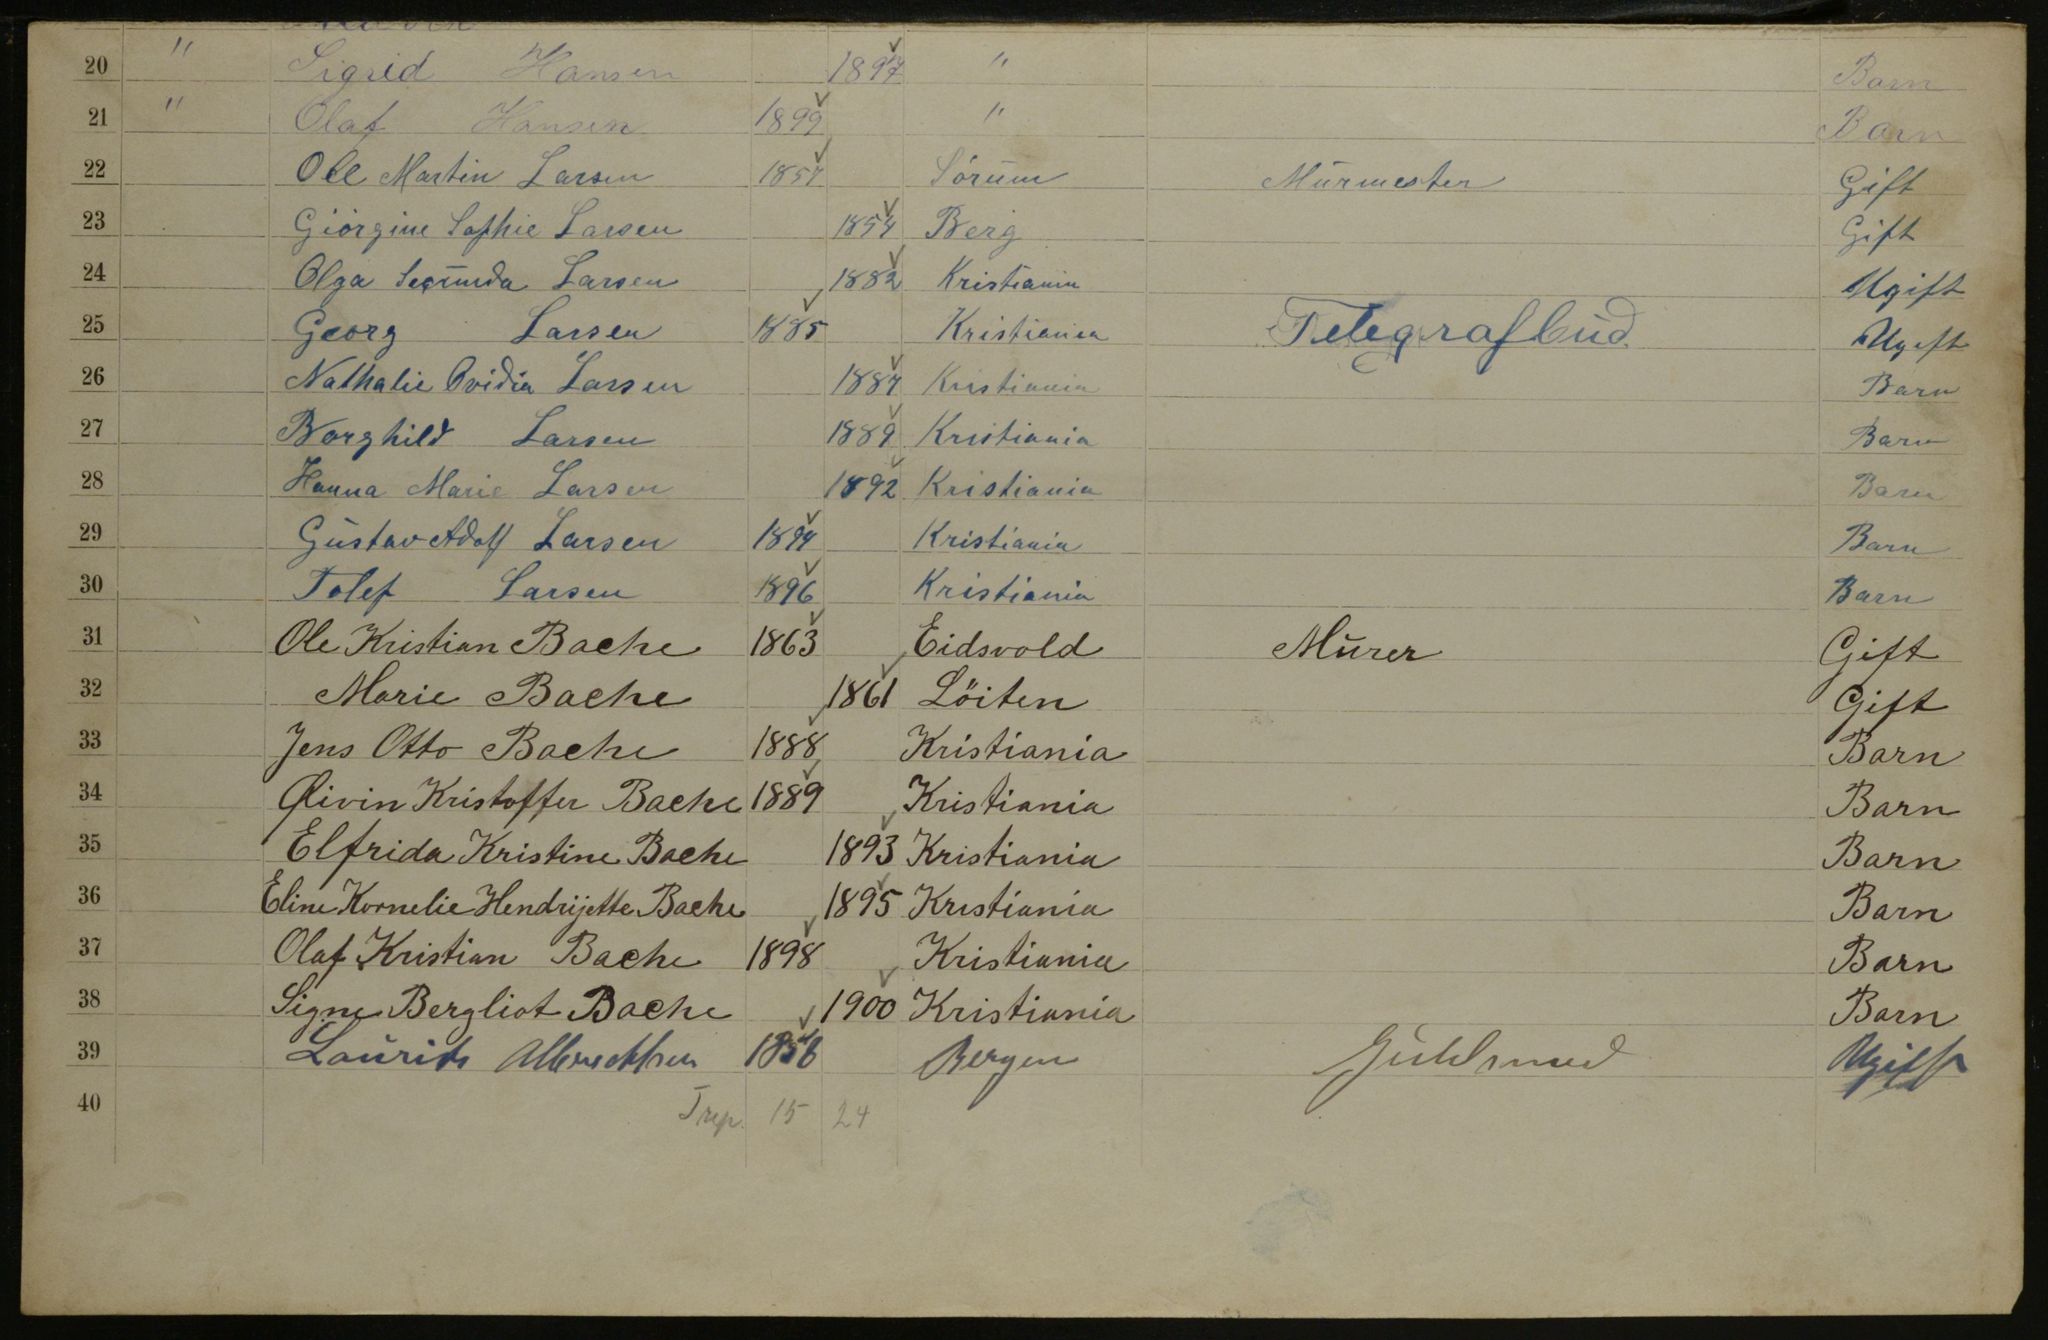 20 " Sigrid Hansen 1897 " Barn
21 " Olaf Hansen 1899 " Barn
22 Ole Martin Larsen 1857 Sörum Murmester Gift
23 Giörgine Sofhie Larsen 1854 Berg Gift
24 Olga Secunda Larsen 1882 Kristiania Ugift
25 Georg Larsen 1885 Kristiania Telegrafbud Ugift
26 Nathalie Ovidia Larsen 1887 Kristiania Barn
27 Borghild Larsen 1889 Kristiania Barn
28 Hanna Marie Larsen 1892 Kristiania Barn
29 Gustav Adolf Larsen 1894 Kristiania Barn
30 Tolef Larsen 1896 Kristiania Barn
31 Ole Kristian Bache 1863 Eidsvold Murer Gift
32 Marie Bache 1861 Löiten Gift
33 Jens Otto Bache 1888 Kristiania Barn
34 Øivin Kristoffer Bache 1889 Kristiania Barn
35 Elfrida Kristine Bache 1893 Kristiania Barn
36 Eline Kornelie Hendrijette Bache 1895 Kristiania Barn
37 Olaf Kristian Bache 1898 Kristiania Barn
38 Signe Bergliot Bache 1900 Kristiania Barn
39 Laurits Albrechtsen Bergen Guldsmed Ugift
40 15 24